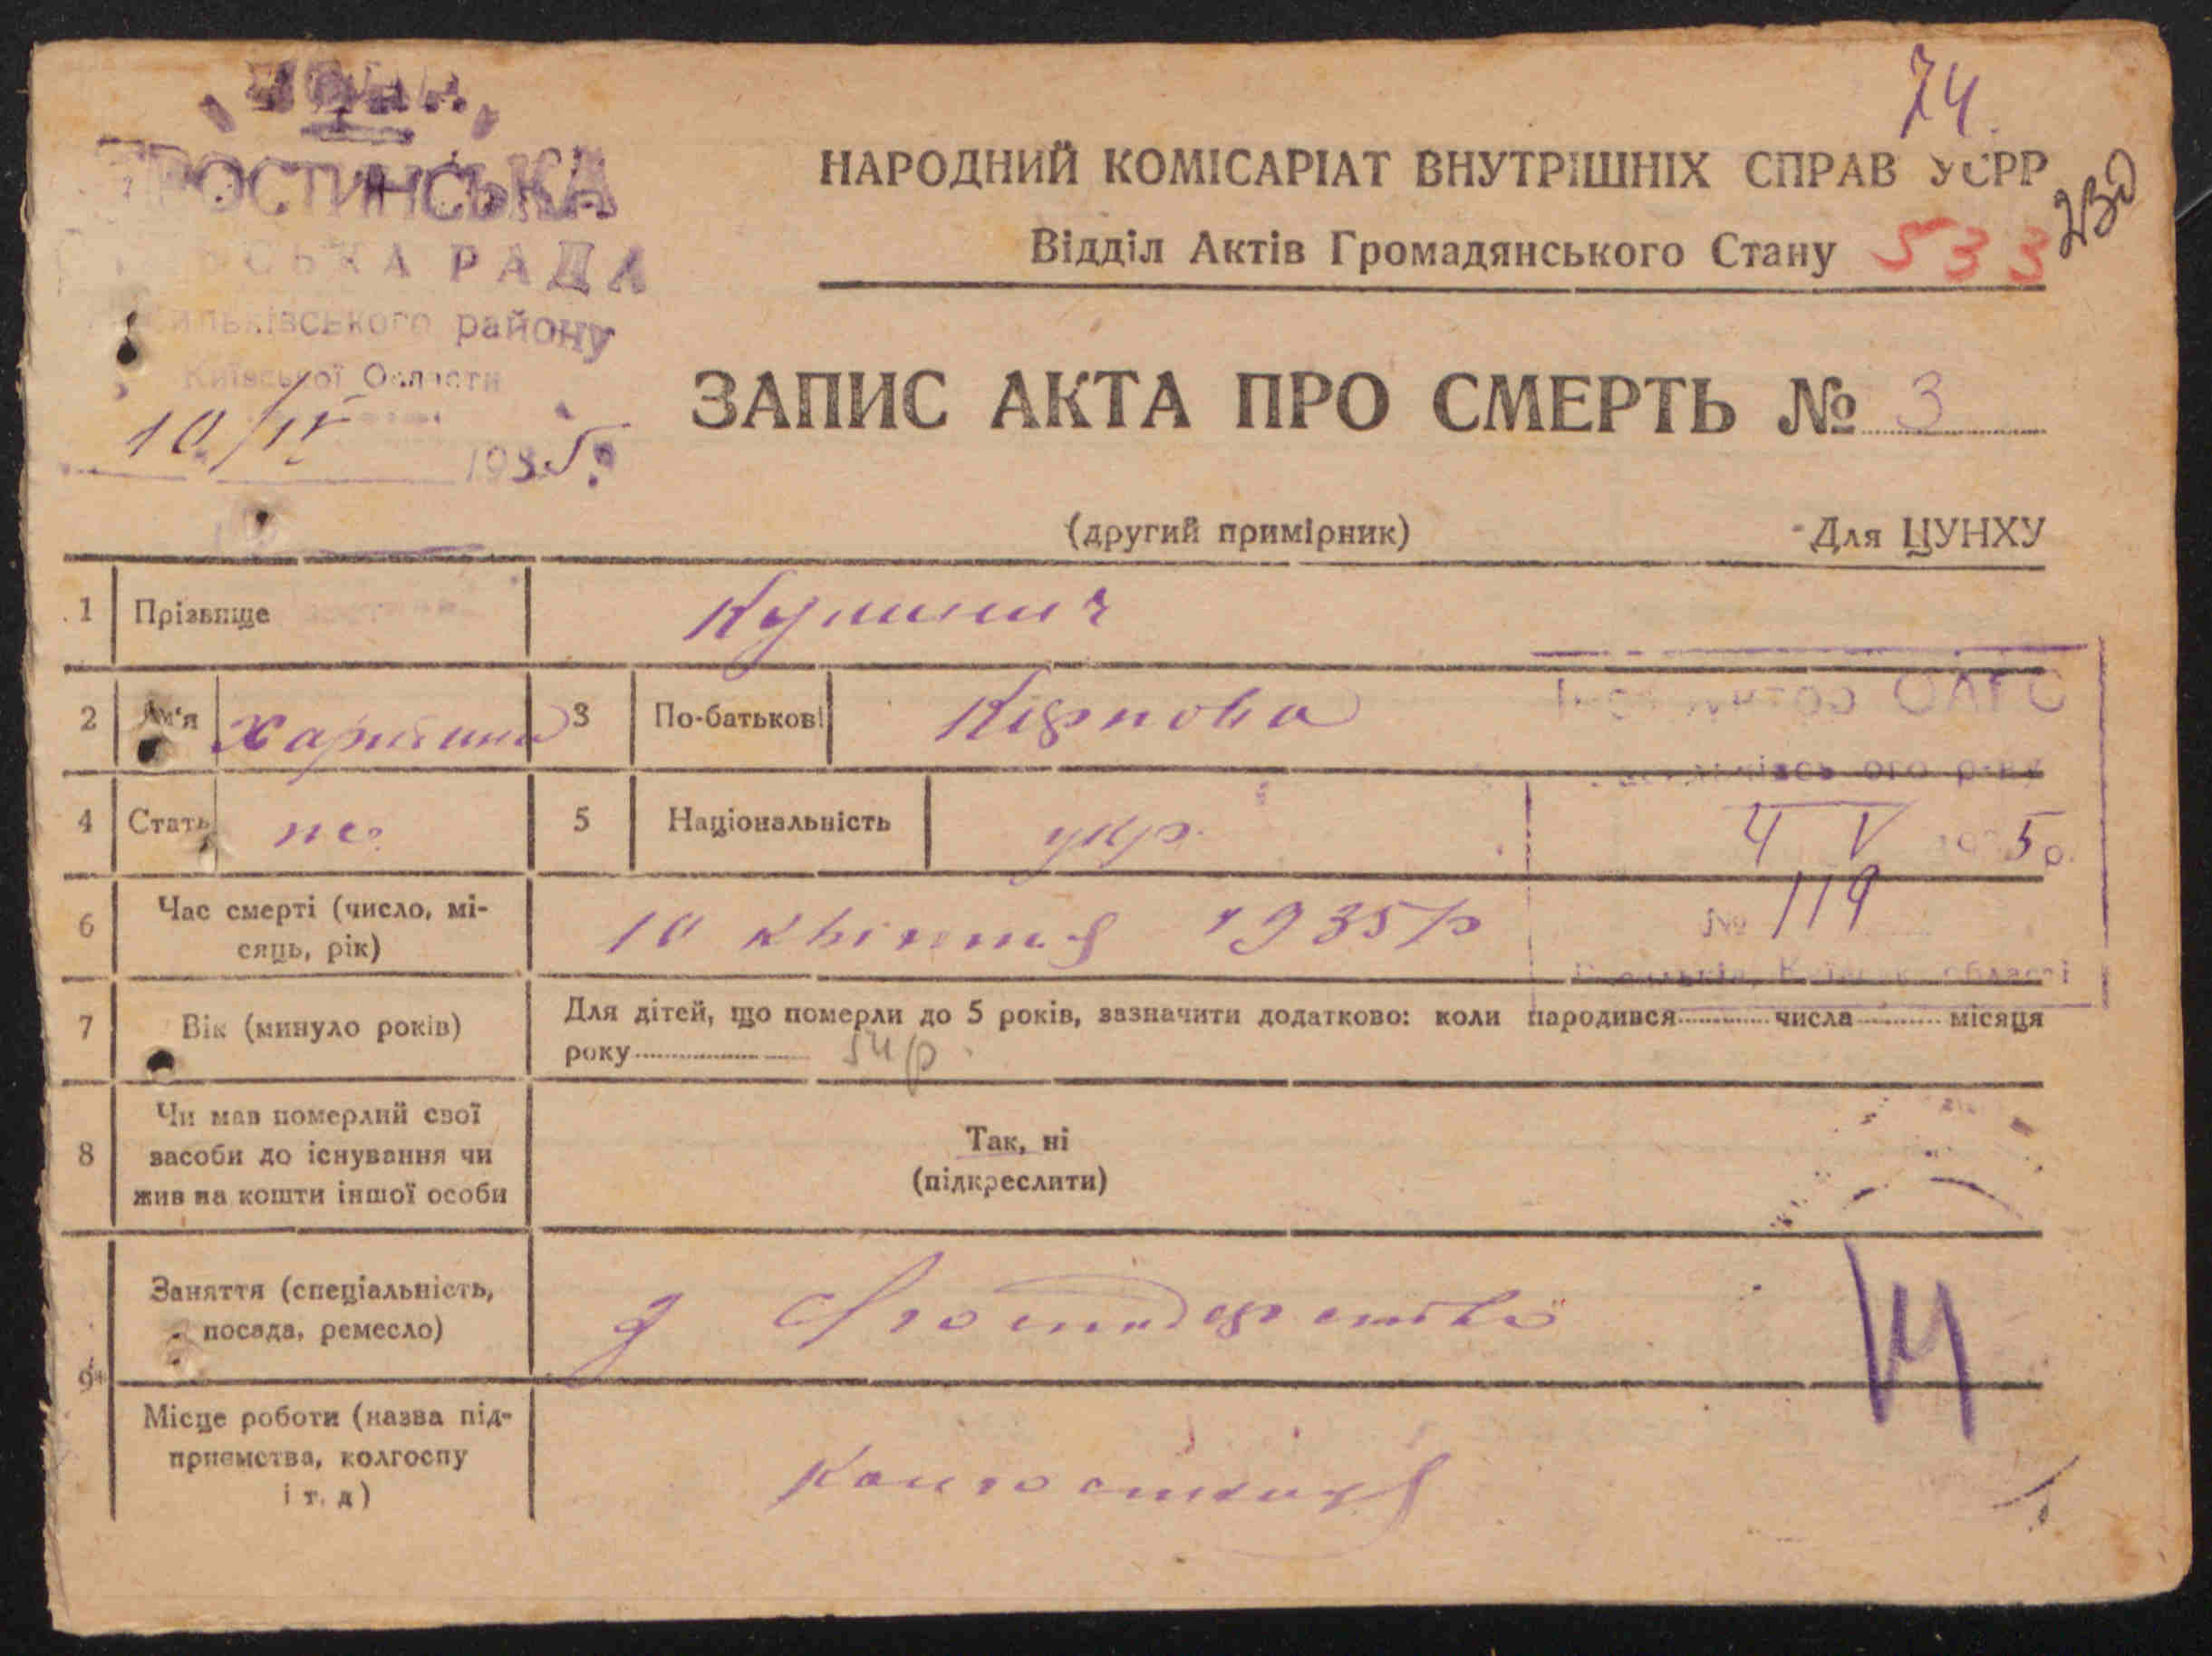 74
ТРОСТИНСЬКА
СЬКА РАДА
Васильківського району
Київської Области
10/IV 1935.
НАРОДНИЙ КОМІСАРІАТ ВНУТРІШНІХ СПРАВ УСРР
230
Відділ Актів Громадянського Стану 533
ЗАПИС АКТА ПРО СМЕРТЬ № 3
(другий примірник) Для ЦУНХУ
1 Прізвище Кулинич
2 Ім'я Харитина 3 По-батькові Карпова
ОАГС
4 Стать ж 5 Національність укр.
4 V 1935 р.
6 Час смерті (число, місяць, рік) 10 квітня 1935 р
№ 119
Васильків, Київськ. області
7 Вік (минуло років) Для дітей, що померли до 5 років, зазначити додатково: коли народився числа місяця
року 54 р.
8 Чи мав померлий свої
засоби до існування чи
жив на кошти іншої особи
Так, ні
(підкреслити)
9 Заняття (спеціальність,
посада, ремесло)
Місце роботи (назва під-
приємства, колгоспу
і т. д)